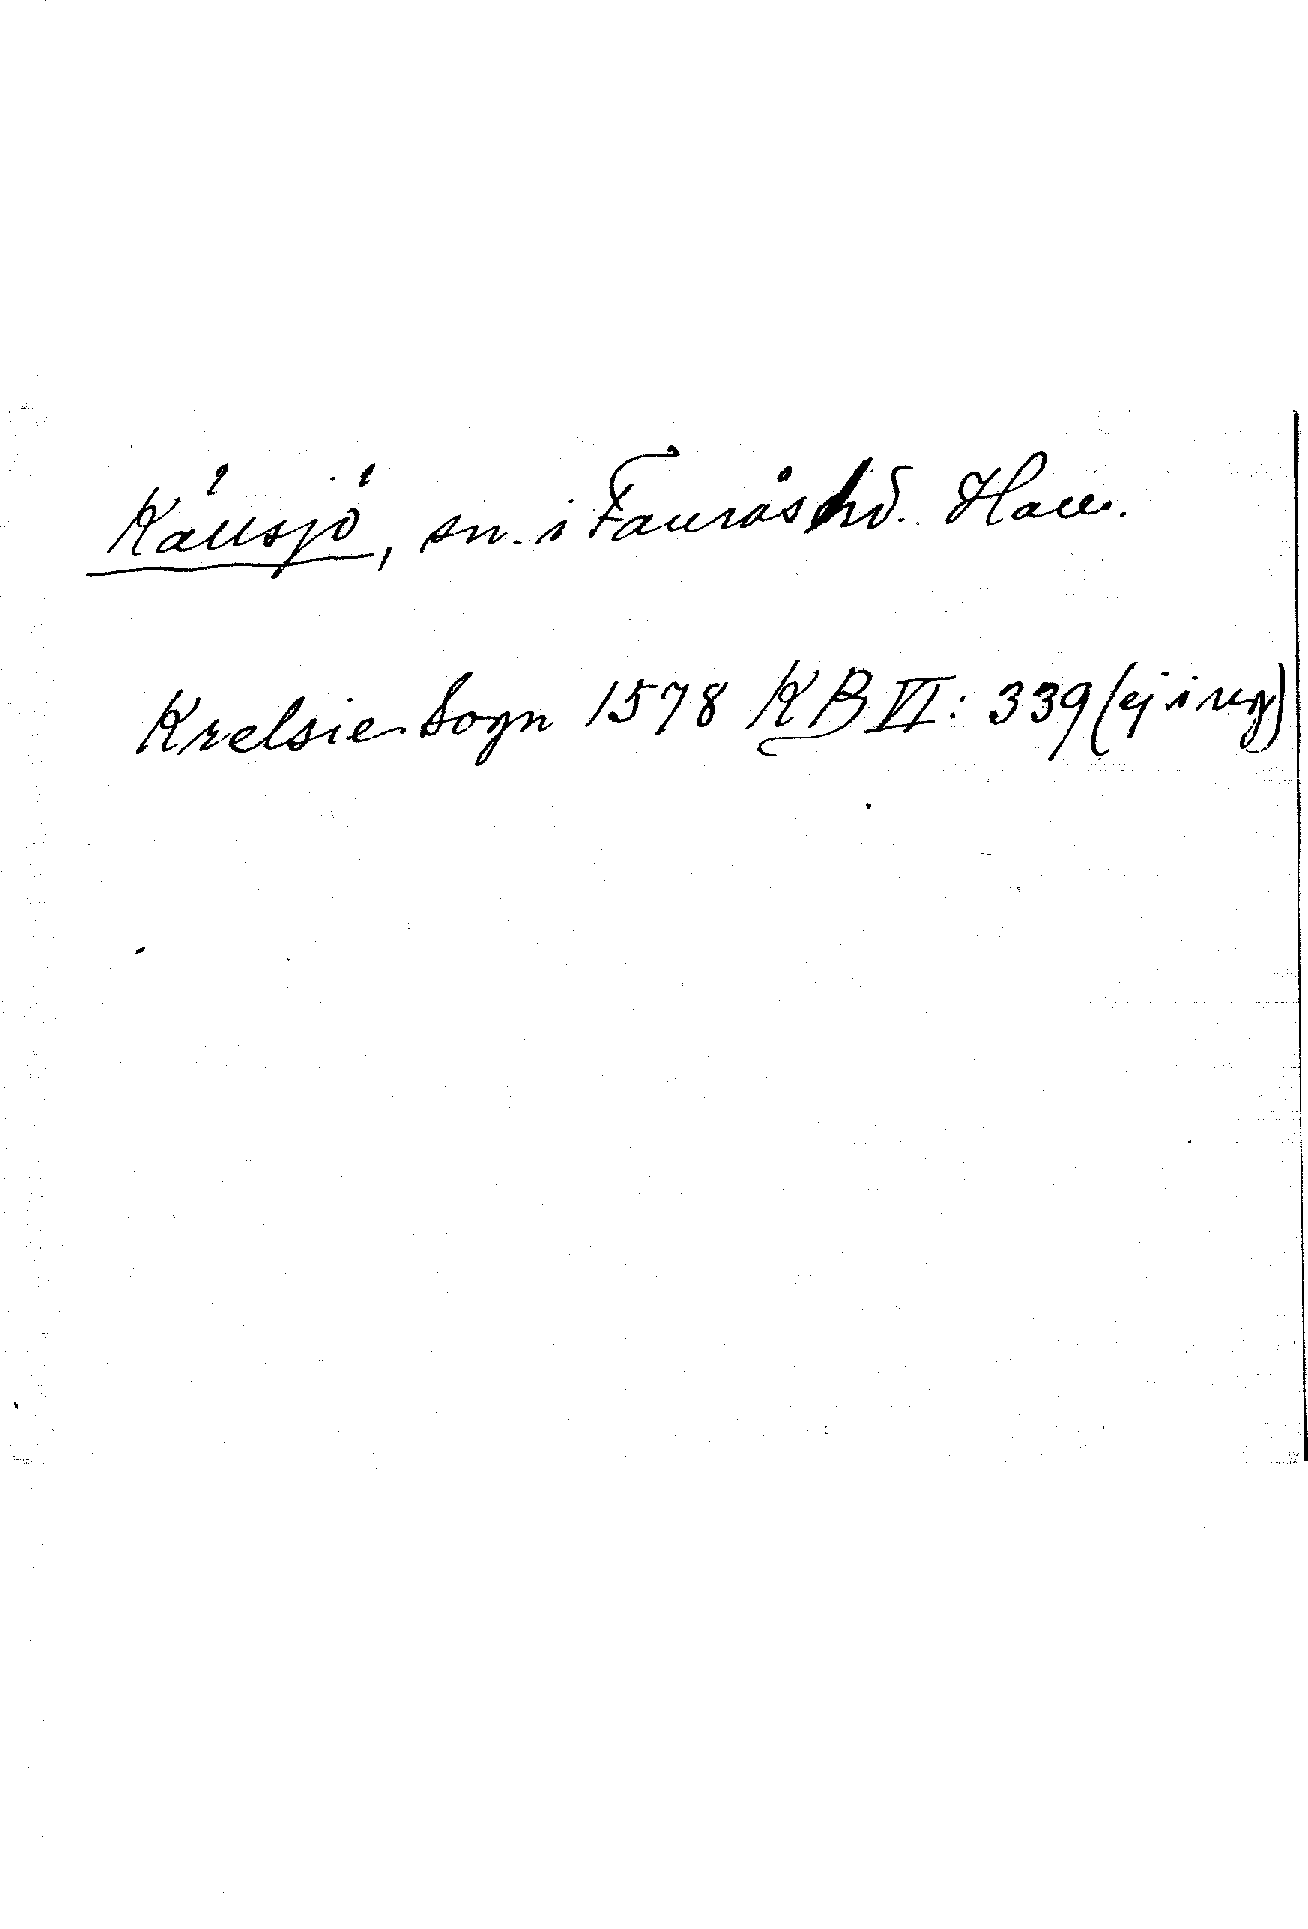 Källsjö, sn. i Faurås hd. Hall.
Krelsie Sogn 1578 KB VI: 339 (ej i reg)